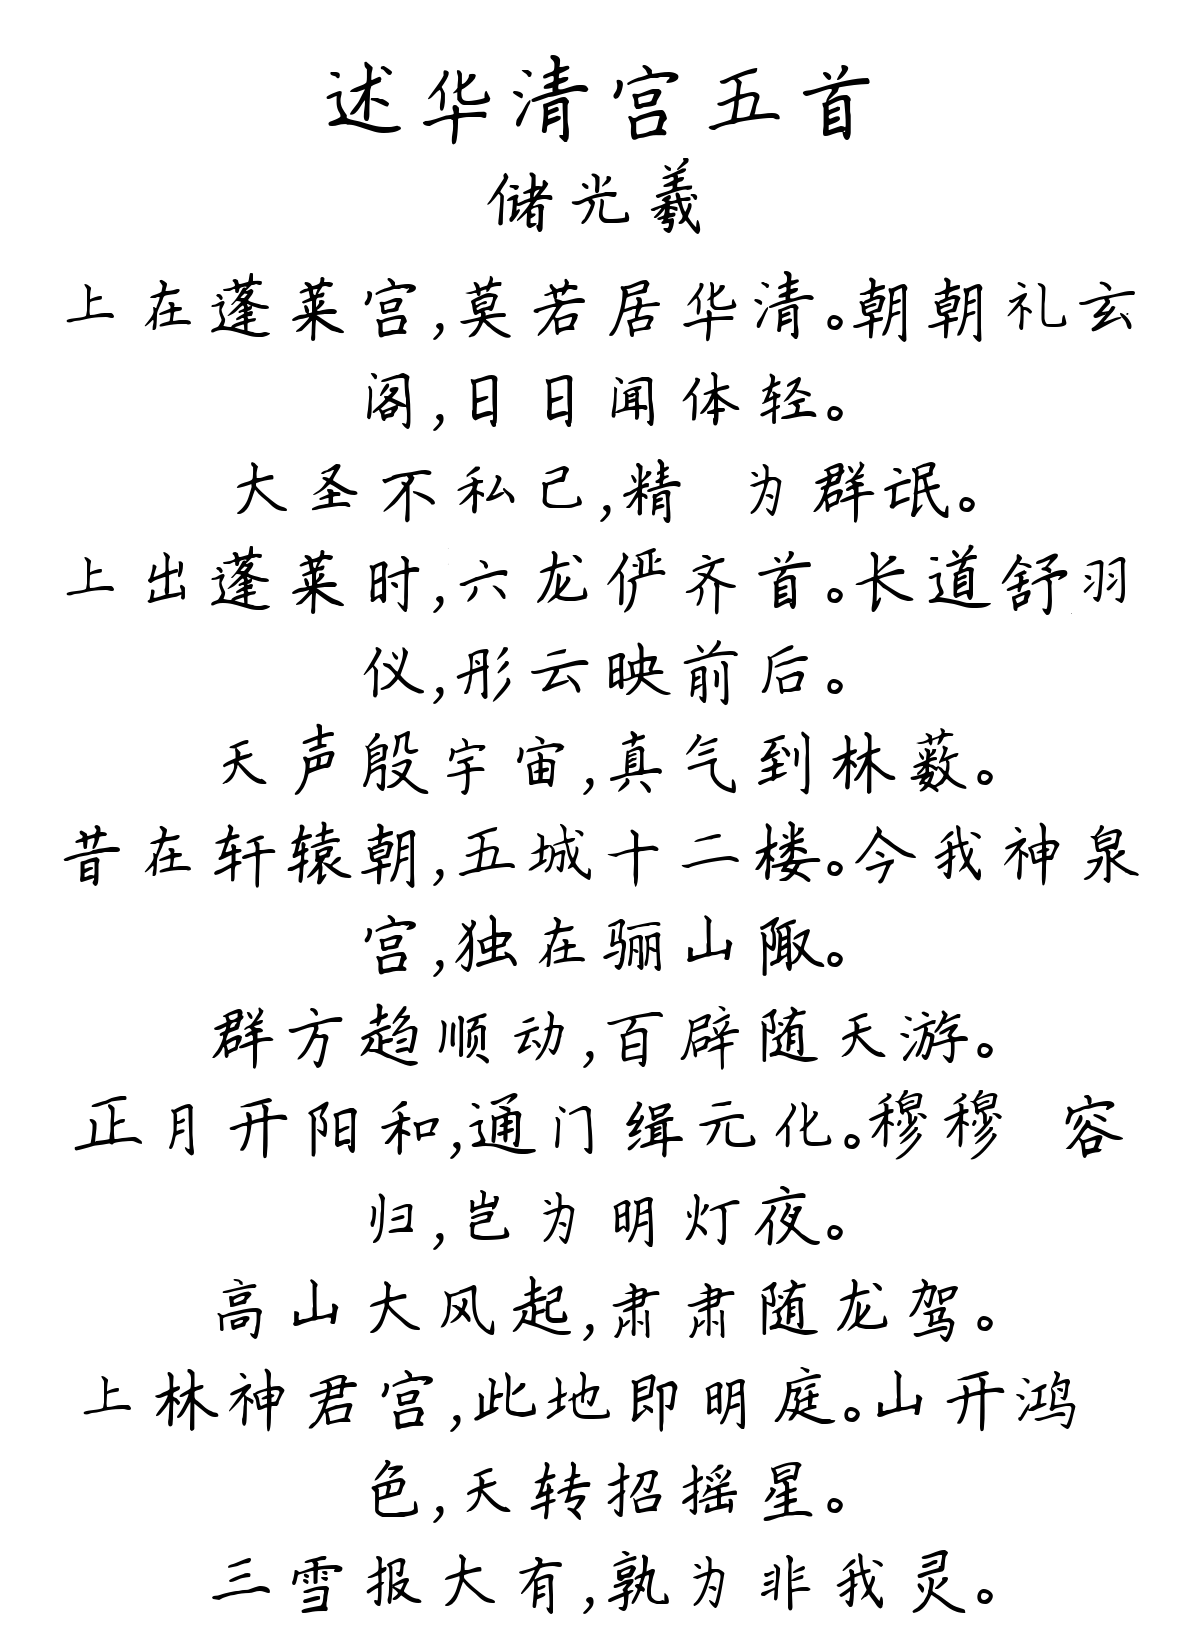 述华清宫五首
储光羲
上在蓬莱宫,莫若居华清。朝朝礼玄
阁,日日闻体轻。
大圣不私己,精 为群氓。
上出蓬莱时,六龙俨齐首。长道舒羽
仪,彤云映前后。
天声殷宇宙,真气到林薮。
昔在轩辕朝,五城十二楼。今我神泉
宫,独在骊山陬。
群方趋顺动,百辟随天游。
正月开阳和,通门缉元化。穆穆 容
归,岂为明灯夜。
高山大风起,肃肃随龙驾。
上林神君宫,此地即明庭。山开鸿
色,天转招摇星。
三雪报大有,孰为非我灵。